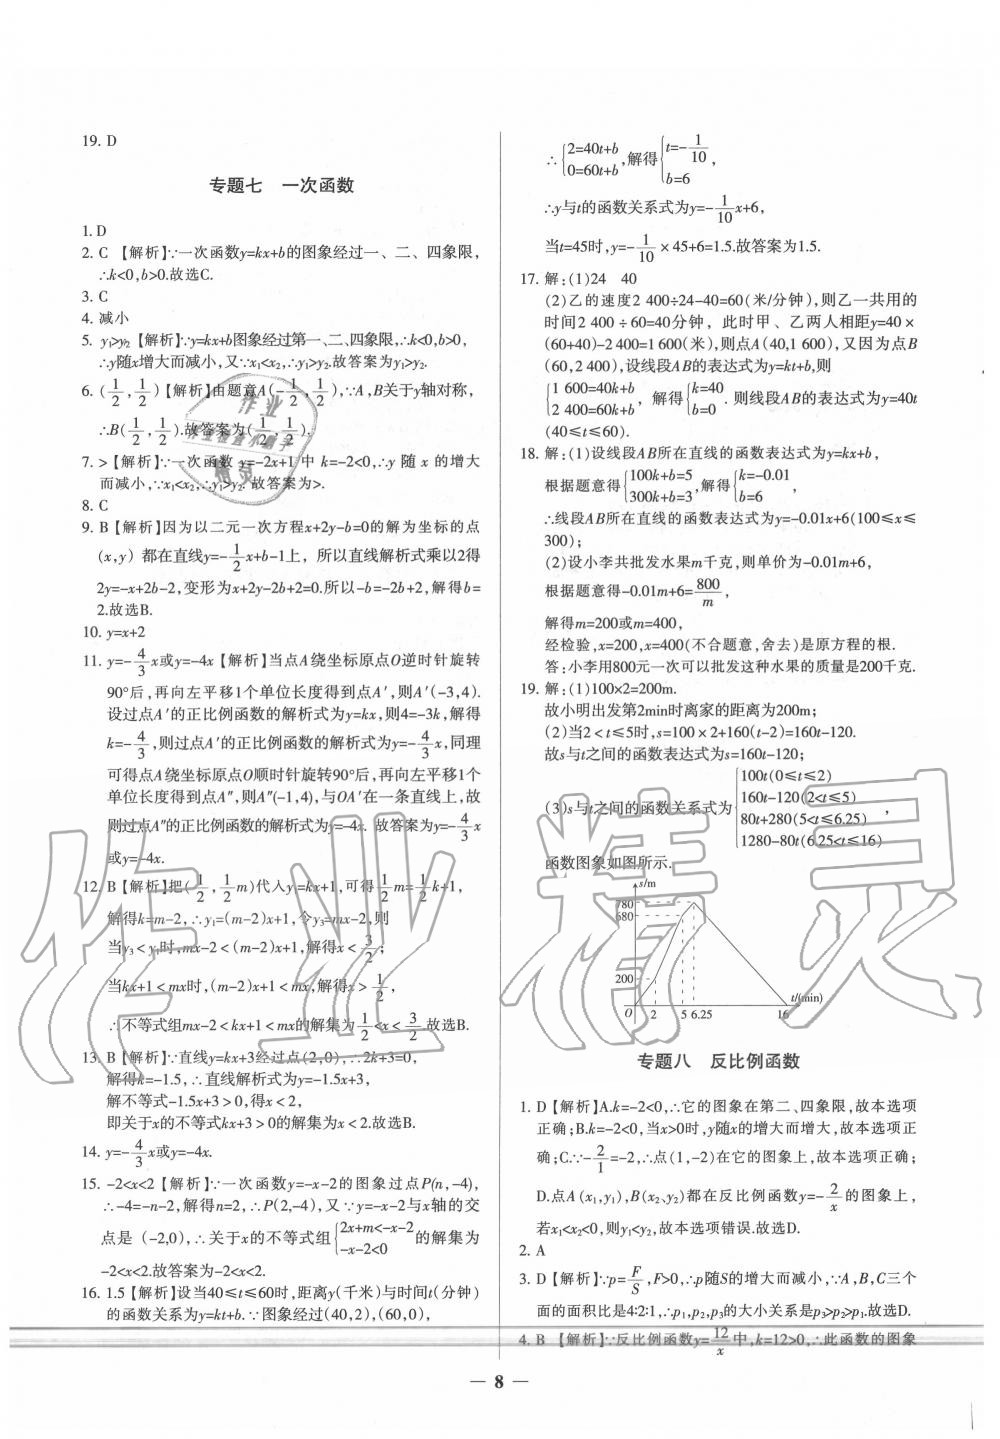 19. D
专题七 一次函数
1. D
2. C 【解析】∵一次函数y=kx+b的图象经过一、二、四象限,
∴k<0,b>0.故选C.
3. C
4. 减小
5. y₁>y₂ 【解析】∵y=kx+b图象经过第一、二、四象限,∴k<0,b>0,
∴y随x增大而减小,又∵x₁<x₂,∴y₁>y₂.故答案为y₁>y₂.
6. (1/2,1/2)【解析】由题意A(-1/2,1/2),∵A,B关于y轴对称,
∴B(1/2,1/2).故答案为(1/2,1/2).
7. > 【解析】∵一次函数 y=-2x+1 中 k=-2<0,∴y 随 x 的增大
而减小,∵x₁<x₂,∴y₁>y₂.故答案为>.
8. C
9. B【解析】因为以二元一次方程x+2y-b=0的解为坐标的点
(x,y) 都在直线y=-1/2x+b-1上, 所以直线解析式乘以2得
2y=-x+2b-2,变形为x+2y-2b+2=0.所以-b=-2b+2,解得b=
2.故选B.
10. y=x+2
11. y=-4/3x或y=-4x【解析】当点A绕坐标原点O逆时针旋转
90°后,再向左平移1个单位长度得到点A′,则A′(-3,4).
设过点A′的正比例函数的解析式为y=kx,则4=-3k,解得
k=-4/3,则过点A′的正比例函数的解析式为y=-4/3x,同理
可得点A绕坐标原点O顺时针旋转90°后,再向左平移1个
单位长度得到点A″,则A″(-1,4),与OA′在一条直线上,故
则过点A″的正比例函数的解析式为y=-4x. 故答案为y=-4/3x
或y=-4x.
12. B【解析】把(1/2,1/2m)代入y₁=kx+1,可得1/2m=1/2k+1,
解得k=m-2,∴y₁=(m-2)x+1,令y₃=mx-2,则
当y₃<y₁时,mx-2<(m-2)x+1,解得x<3/2;
当kx+1<mx时,(m-2)x+1<mx,解得x>1/2,
∴不等式组mx-2<kx+1<mx的解集为1/2<x<3/2.故选B.
13. B【解析】∵直线y=kx+3经过点(2,0),∴2k+3=0,
解得k=-1.5,∴直线解析式为y=-1.5x+3,
解不等式-1.5x+3>0,得x<2,
即关于x的不等式kx+3>0的解集为x<2.故选B.
14. y=-4/3x或y=-4x.
15. -2<x<2【解析】∵一次函数y=-x-2的图象过点P(n,-4),
∴-4=-n-2,解得n=2,∴P(2,-4),又∵y=-x-2与x轴的交
点是 (-2,0),∴关于x的不等式组{2x+m<-x-2 -x-2<0的解集为
-2<x<2.故答案为-2<x<2.
16. 1.5【解析】设当40≤t≤60时,距离y(千米)与时间t(分钟)
的函数关系为y=kt+b.∵图象经过(40,2),(60,0),
∴{2=40t+b 0=60t+b,解得{t=-1/10 b=6,
∴y与t的函数关系式为y=-1/10x+6,
当t=45时,y=-1/10×45+6=1.5.故答案为1.5.
17. 解:(1)24 40
(2)乙的速度2 400÷24-40=60(米/分钟),则乙一共用的
时间2 400÷60=40分钟, 此时甲、乙两人相距y=40×
(60+40)-2 400=1 600(米),则点A(40,1 600),又因为点B
(60,2 400),设线段AB的表达式为y=kt+b,则
{1 600=40k+b 2 400=60k+b, 解得{k=40 b=0.则线段AB的表达式为y=40t
(40≤t≤60).
18. 解:(1)设线段AB所在直线的函数表达式为y=kx+b,
根据题意得{100k+b=5 300k+b=3,解得{k=-0.01 b=6,
∴线段AB所在直线的函数表达式为y=-0.01x+6(100≤x≤
300);
(2)设小李共批发水果m千克,则单价为-0.01m+6,
根据题意得-0.01m+6=800/m,
解得m=200或m=400,
经检验,x=200,x=400(不合题意,舍去)是原方程的根.
答:小李用800元一次可以批发这种水果的质量是200千克.
19. 解:(1)100×2=200m.
故小明出发第2min时离家的距离为200m;
(2)当2<t≤5时,s=100×2+160(t-2)=160t-120.
故s与t之间的函数表达式为s=160t-120;
(3)s与t之间的函数关系式为{100t(0≤t≤2) 160t-120(2<t≤5) 80t+280(5<t≤6.25) 1280-80t(6.25<t≤16),
函数图象如图所示.
s/m
780
680
200
O 2 5 6.25 16 t/(min)
专题八 反比例函数
1. D【解析】A.k=-2<0,∴它的图象在第二、四象限,故本选项
正确;B.k=-2<0,当x>0时,y随x的增大而增大,故本选项正
确;C.∵-2/1=-2,∴点(1,-2)在它的图象上,故本选项正确;
D.点A(x₁,y₁),B(x₂,y₂)都在反比例函数y=-2/x的图象上,
若x₁<x₂<0,则y₁<y₂,故本选项错误.故选D.
2. A
3. D【解析】∵p=F/S,F>0,∴p随S的增大而减小,∵A,B,C三个
面的面积比是4:2:1,∴p₁,p₂,p₃的大小关系是p₃>p₂>p₁.故选D.
4. B 【解析】∵反比例函数y=12/x中,k=12>0,∴此函数的图象
— 8 —
作业精灵
作业
作业检查小助手
精灵